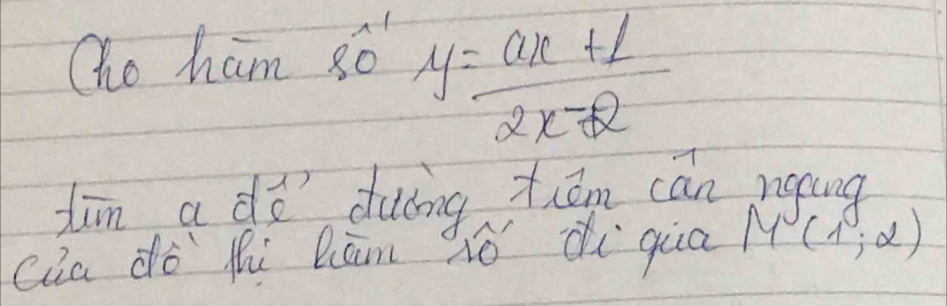 Cho hàm số y = (ax + 1)/(2x - 2)
tìm a để đường tiệm cận ngang
của đồ thị hàm số đi qua M (1; 2)